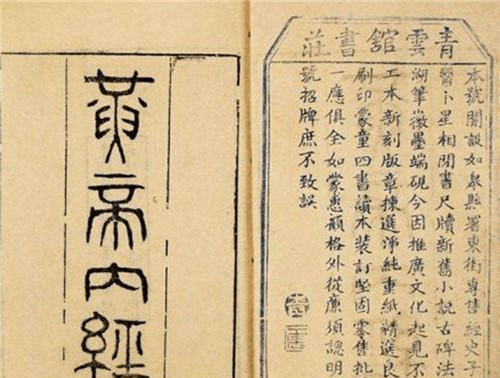 青雲舘書莊
本號開設如皋縣署東街專售經史子
醫卜星相閒書尺牘新舊小說古碑法
湖筆徽墨端硯今因推廣文化起見不
工本新刻版章揀選淨純重紙精選良
刷印蒙童四書讀本裝訂堅固零售批
一應俱全如蒙惠顧格外從廉須認明
號招牌庶不致誤
黃帝內經